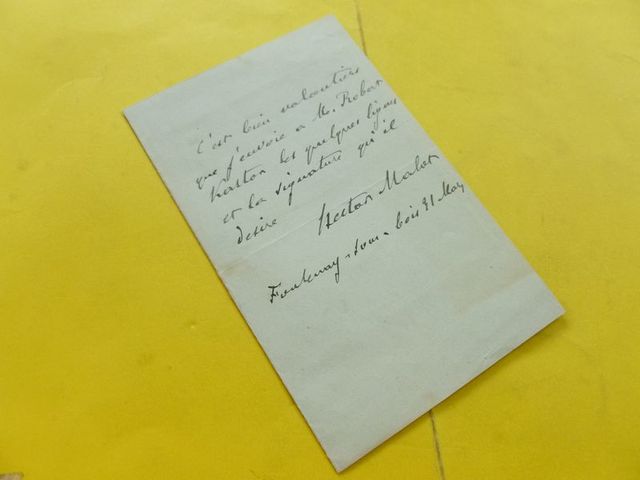 C'est bien volontiers
que j'envoie a Mr. Robert
Kaston les quelques lignes
et la signature qu'il
desire Hector Malot
Fontenay-sous-bois 31 May